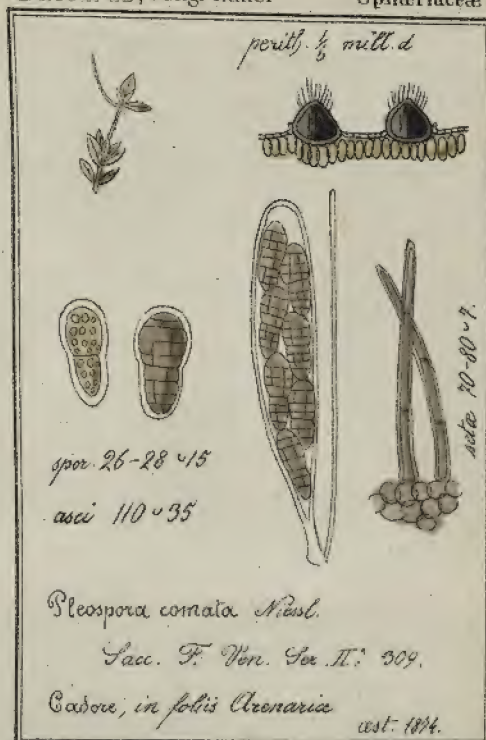 Sphæriaceæ
perith. ⅕ mill. d
setæ 70-80 ∨ 7.
spor. 26-28 ∨ 15
asci 110 ∨ 35
Pleospora comata Niessl.
Sacc. F. Ven. Ser. II: 309.
Cadore, in foliis Arenariæ
æst. 1874.